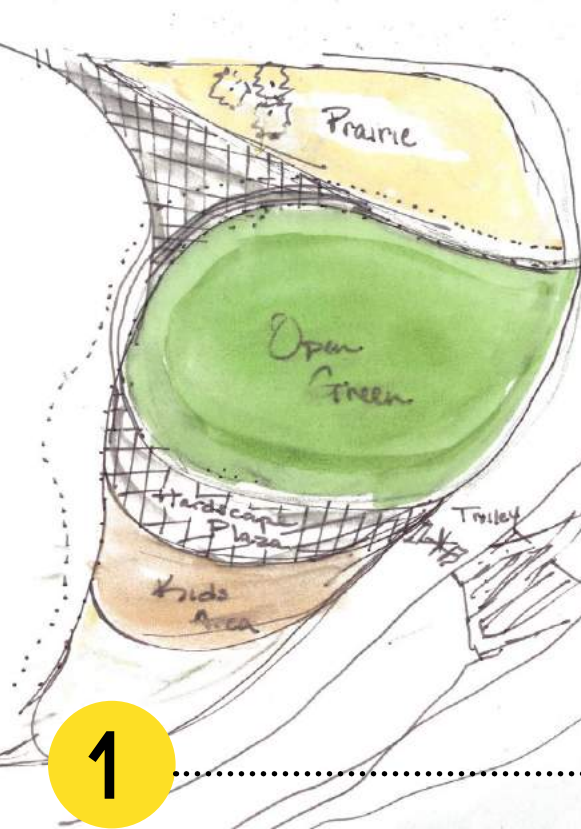 Prairie
Open
Green
Hardscape
Plaza
Trolley
Kids
Area
1